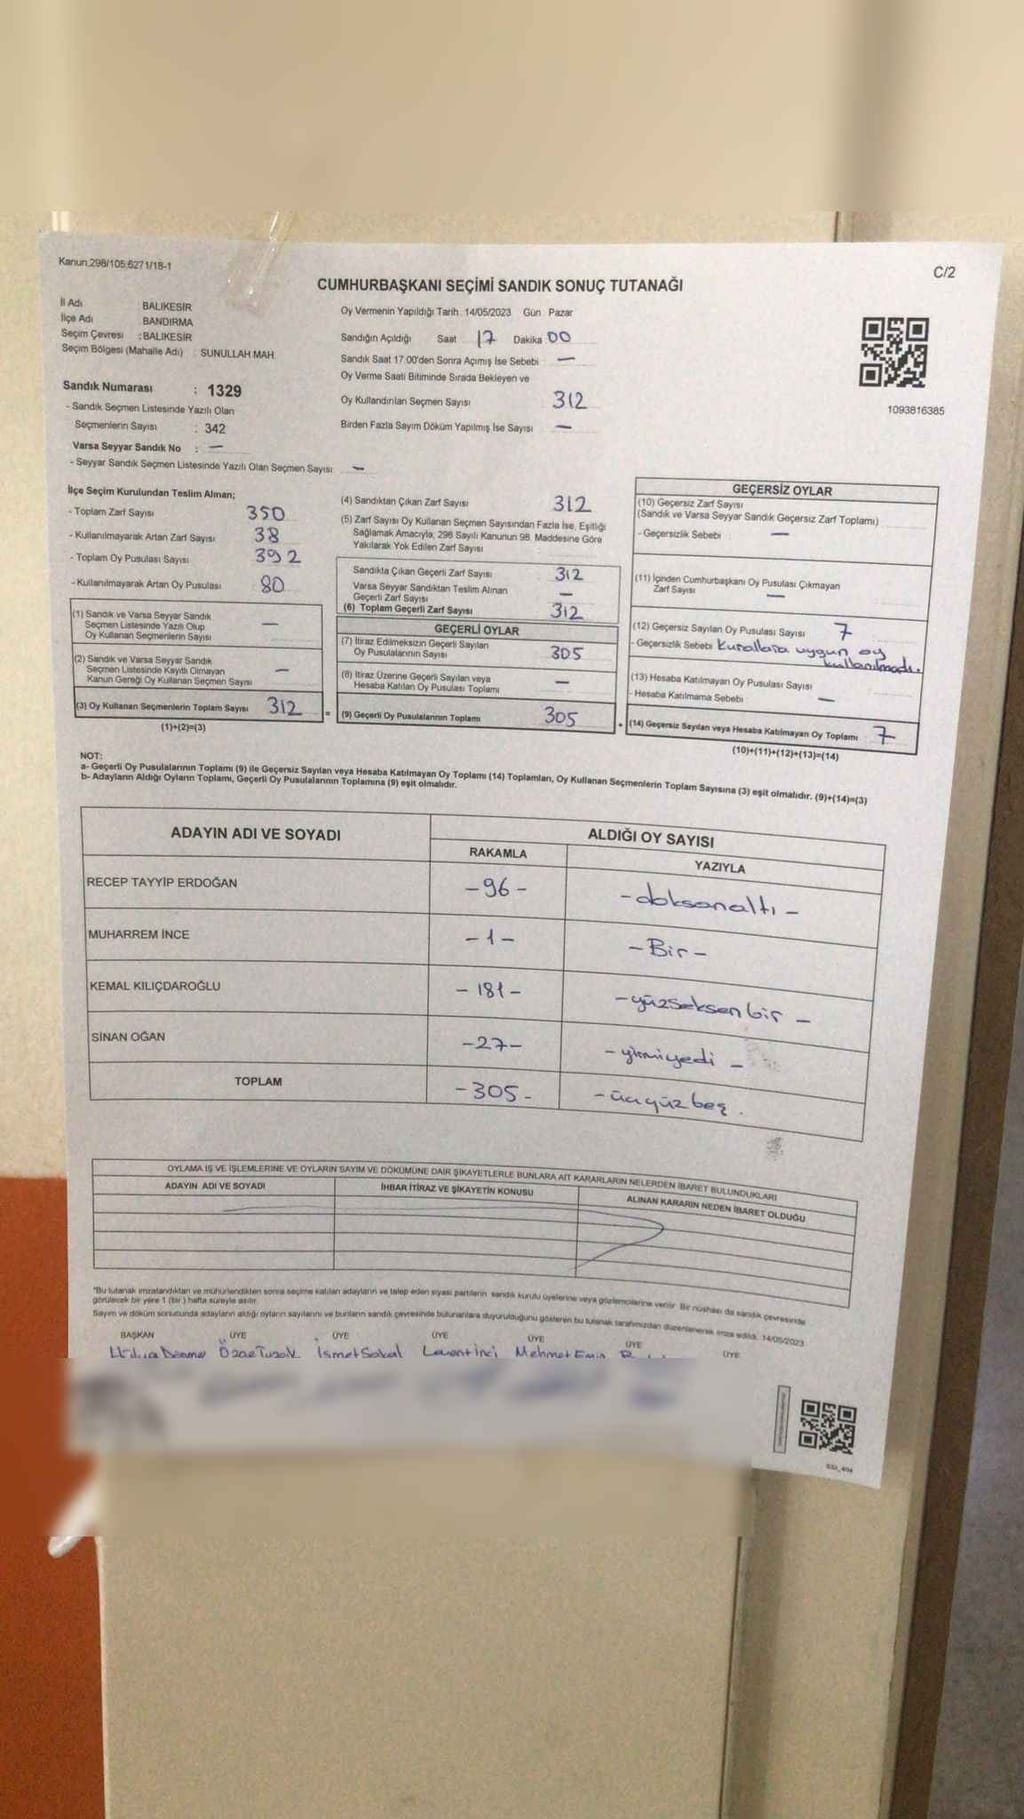 Kanun:298/105;6271/18-1
C/2
CUMHURBAŞKANI SEÇİMİ SANDIK SONUÇ TUTANAĞI
İl Adı BALIKESİR
İlçe Adı BANDIRMA
Seçim Çevresi : BALIKESİR
Seçim Bölgesi (Mahalle Adı) : SUNULLAH MAH.
Oy Vermenin Yapıldığı Tarih 14/05/2023 Gün Pazar
Sandığın Açıldığı Saat 17 Dakika 00
Sandık Saat 17:00'den Sonra Açımış İse Sebebi —
Oy Verme Saati Bitiminde Sırada Bekleyen ve
Oy Kullandırılan Seçmen Sayısı 312
Birden Fazla Sayım Döküm Yapılmış İse Sayısı —
1093816385
Sandık Numarası : 1329
- Sandık Seçmen Listesinde Yazılı Olan
Seçmenlerin Sayısı : 342
Varsa Seyyar Sandık No : —
- Seyyar Sandık Seçmen Listesinde Yazılı Olan Seçmen Sayısı —
İlçe Seçim Kurulundan Teslim Alınan;
- Toplam Zarf Sayısı 350
- Kullanılmayarak Artan Zarf Sayısı 38
- Toplam Oy Pusulası Sayısı 392
- Kullanılmayarak Artan Oy Pusulası 80
(1) Sandık ve Varsa Seyyar Sandık
Seçmen Listesinde Yazılı Olup
Oy Kullanan Seçmenlerin Sayısı —
(2) Sandık ve Varsa Seyyar Sandık
Seçmen Listesinde Kayıtlı Olmayan
Kanun Gereği Oy Kullanan Seçmen Sayısı —
(3) Oy Kullanan Seçmenlerin Toplam Sayısı 312
(1)+(2)=(3)
(4) Sandıktan Çıkan Zarf Sayısı 312
(5) Zarf Sayısı Oy Kullanan Seçmen Sayısından Fazla İse, Eşitliği
Sağlamak Amacıyla, 298 Sayılı Kanunun 98. Maddesine Göre
Yakılarak Yok Edilen Zarf Sayısı
Sandıkta Çıkan Geçerli Zarf Sayısı 312
Varsa Seyyar Sandıktan Teslim Alınan
Geçerli Zarf Sayısı —
(6) Toplam Geçerli Zarf Sayısı 312
GEÇERLİ OYLAR
(7) İtiraz Edilmeksizin Geçerli Sayılan
Oy Pusulalarının Sayısı 305
(8) İtiraz Üzerine Geçerli Sayılan veya
Hesaba Katılan Oy Pusulası Toplamı —
(9) Geçerli Oy Pusulalarının Toplamı 305
GEÇERSİZ OYLAR
(10) Geçersiz Zarf Sayısı
(Sandık ve Varsa Seyyar Sandık Geçersiz Zarf Toplamı)
- Geçersizlik Sebebi —
(11) İçinden Cumhurbaşkanı Oy Pusulası Çıkmayan
Zarf Sayısı —
(12) Geçersiz Sayılan Oy Pusulası Sayısı 7
- Geçersizlik Sebebi Kurallara uygun oy
kullanılmadı.
(13) Hesaba Katılmayan Oy Pusulası Sayısı
- Hesaba Katılmama Sebebi —
(14) Geçersiz Sayılan veya Hesaba Katılmayan Oy Toplamı 7
(10)+(11)+(12)+(13)=(14)
NOT:
a- Geçerli Oy Pusulalarının Toplamı (9) ile Geçersiz Sayılan veya Hesaba Katılmayan Oy Toplamı (14) Toplamları, Oy Kullanan Seçmenlerin Toplam Sayısına (3) eşit olmalıdır. (9)+(14)=(3)
b- Adayların Aldığı Oyların Toplamı, Geçerli Oy Pusulalarının Toplamına (9) eşit olmalıdır.
ADAYIN ADI VE SOYADI
ALDIĞI OY SAYISI
RAKAMLA YAZIYLA
RECEP TAYYİP ERDOĞAN -96- -doksanaltı-
MUHARREM İNCE -1- -Bir-
KEMAL KILIÇDAROĞLU -181- -yüzseksenbir-
SİNAN OĞAN -27- -yirmiyedi-
TOPLAM -305- -üçyüzbeş.
OYLAMA İŞ VE İŞLEMLERİNE VE OYLARIN SAYIM VE DÖKÜMÜNE DAİR ŞİKAYETLERLE BUNLARA AİT KARARLARIN NELERDEN İBARET BULUNDUKLARI
ADAYIN ADI VE SOYADI İHBAR İTİRAZ VE ŞİKAYETİN KONUSU ALINAN KARARIN NEDEN İBARET OLDUĞU
"Bu tutanak imzalandıktan ve mühürlendikten sonra seçime katılan adayların ve talep eden siyasi partilerin sandık kurulu üyelerine veya gözlemcilerine verilir. Bir nüshası da sandık çevresinde
görülecek bir yere 1 (bir) hafta süreyle asılır.
Sayım ve döküm sonucunda adayların aldığı oyların sayılarını ve bunların sandık çevresinde bulunanlara duyurulduğunu gösteren bu tutanak tarafımızdan düzenlenerek imza edildi. 14/05/2023
BAŞKAN ÜYE ÜYE ÜYE ÜYE ÜYE ÜYE
İsmet Levent İnci Mehmet Emin